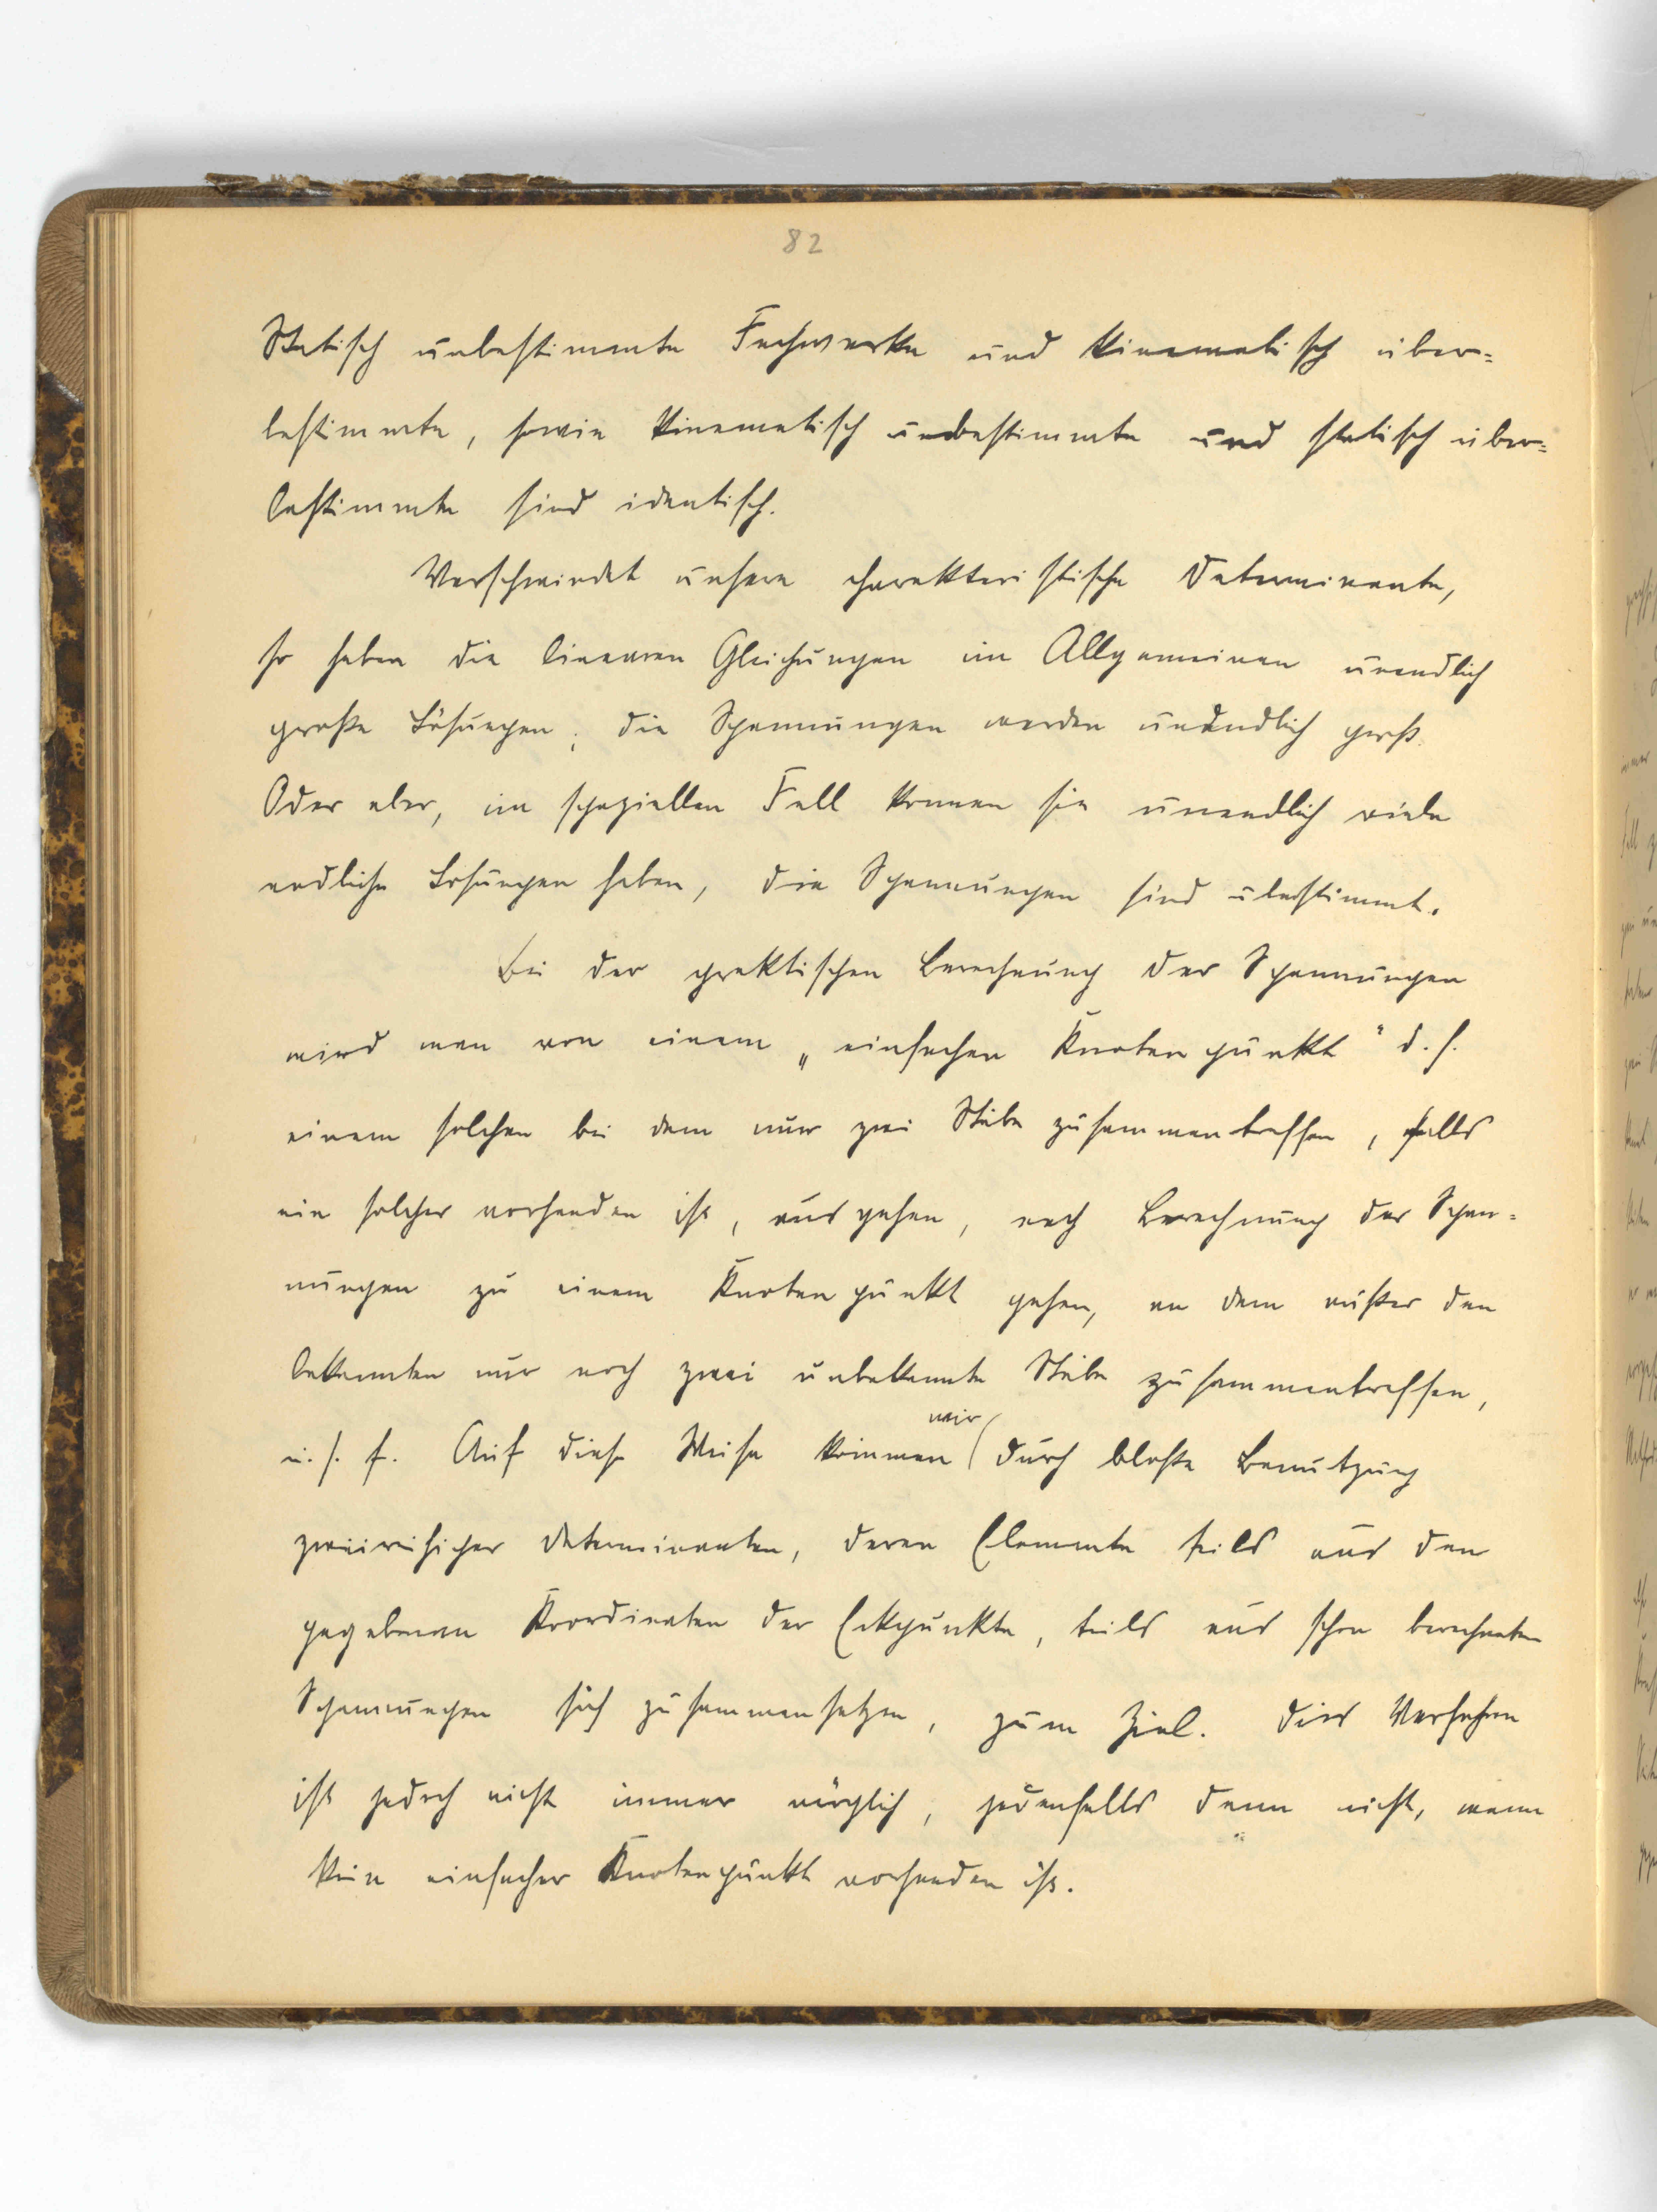 82
Statisch unbestimmte Fachwerke und kinematisch über=
bestimmte, sowie kinematisch unbestimmte und statisch über=
bestimmte sind identisch.
Verschwindet unsere charakteristische Determinante,
so haben die linearen Gleichungen im Allgemeinen unendlich
große Lösungen; die Spannungen werden unendlich groß.
Oder aber, im speziellen Fall können sie unendlich viele
endliche Lösungen haben, die Spannungen sind ubestimmt.
Bei der praktischen Berechnung der Spannungen
wird man von einem „einfachen Knotenpunkt" d. h.
einem solchen bei dem nur zwei Stäbe zusammentreffen, falls
ein solcher vorhanden ist, ausgehen, nach Berechnung der Span=
nungen zu einem Knotenpunkt gehen, an dem außer den
bekannten nur noch zwei unbekannte Stäbe zusammentreffen,
u. s. f. Auf diese Weise kommen wir durch bloße Benutzung
zweireihiger Determinanten, deren Elemente teils aus den
gegebenen Koordinaten der Eckpunkte, teils aus schon berechneten
Spannungen sich zusammensetzen, zum Ziel. Dies Verfahren
ist jedoch nicht immer möglich, jedenfalls dann nicht, wenn
kein einfacher Knotenpunkt vorhanden ist.